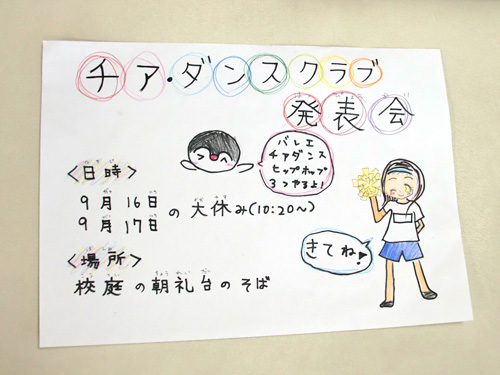 チア・ダンスクラブ
発表会
バレエ
チアダンス
ヒップホップ
3つやるよ!
<日時>
9月16日
9月17日
の大休み(10:20~)
きてね!
<場所>
校庭の朝礼台のそば